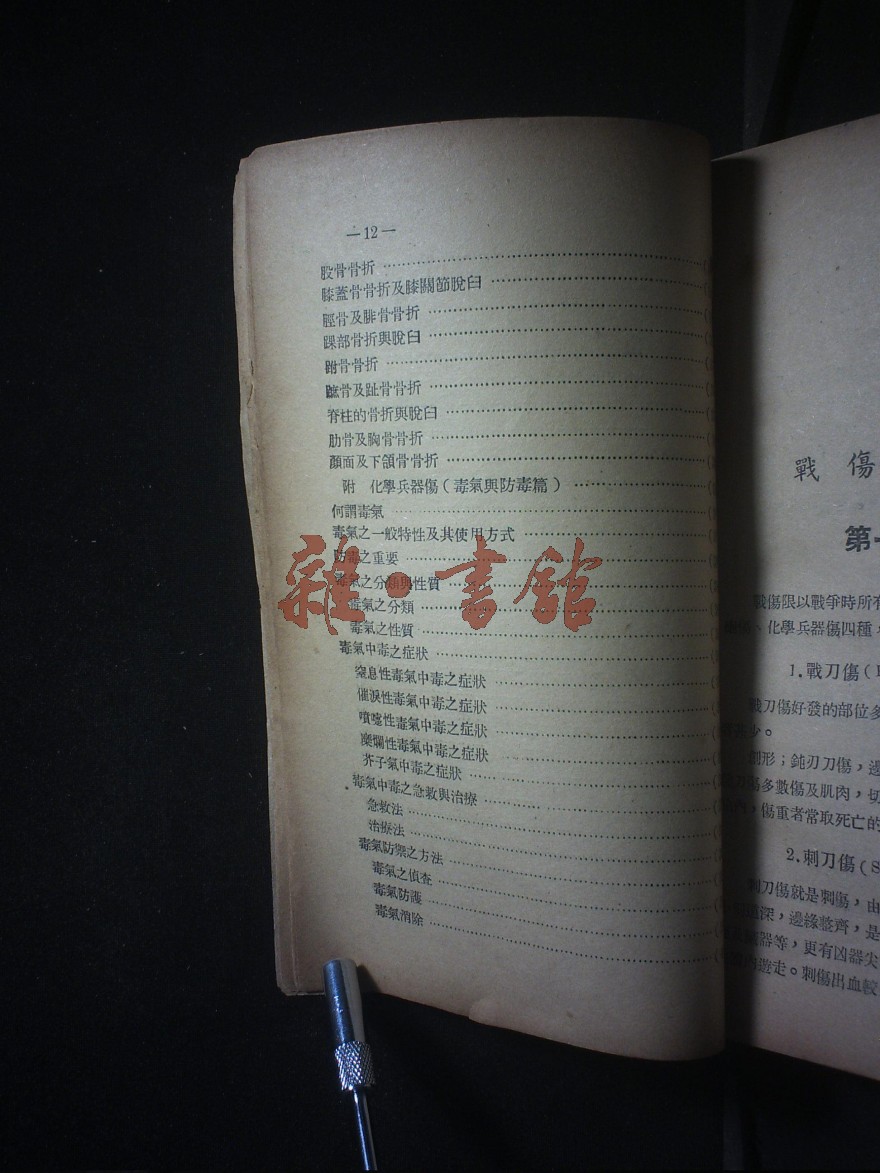 —12—
股骨骨折
膝蓋骨骨折及膝關節脫臼
脛骨及腓骨骨折
踝部骨折與脫臼
跗骨骨折
蹠骨及趾骨骨折
脊柱的骨折與脫臼
肋骨及胸骨骨折
顏面及下頜骨骨折
附 化學兵器傷（毒氣與防毒篇）
何謂毒氣
毒氣之一般特性及其使用方式
防毒之重要
毒氣之分類與性質
毒氣之分類
毒氣之性質
毒氣中毒之症狀
窒息性毒氣中毒之症狀
催淚性毒氣中毒之症狀
噴嚏性毒氣中毒之症狀
糜爛性毒氣中毒之症狀
芥子氣中毒之症狀
毒氣中毒之急救與治療
急救法
治療法
毒氣防禦之方法
毒氣之偵查
毒氣防護
毒氣消除
雜·書館
戰傷
第一
戰傷限以戰爭時所有
、化學兵器傷四種，
1.戰刀傷（
戰刀傷好發的部位多
少。
創形；鈍刃刀傷，邊
刀傷多數傷及肌肉，切
，傷重者常取死亡的
2.刺刀傷（S
刺刀傷就是刺傷，由
深，邊緣整齊，是
器等，更有凶器尖
遊走。刺傷出血較